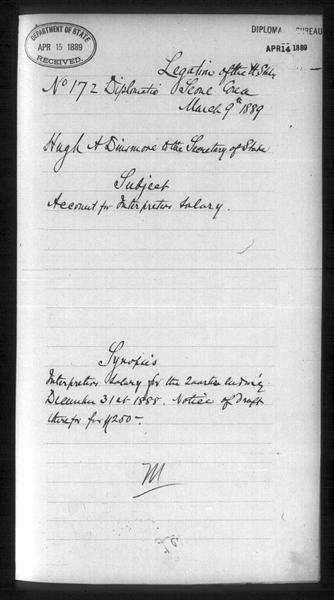 DEPARTMENT OF STATE
APR 15 1889
RECEIVED.
DIPLOMA BUREAU
APR 14 1889
Legation of the U States
No 172 Diplomatic Seoul Corea
March 9th 1889
Hugh A Dinsmore to the Secretary of State
Subject
Account for Interpreters Salary.
Synopsis
Interpreters Salary for the Quarter Ending
December 31st 1888. Notice of Draft
therefor for $250-
M